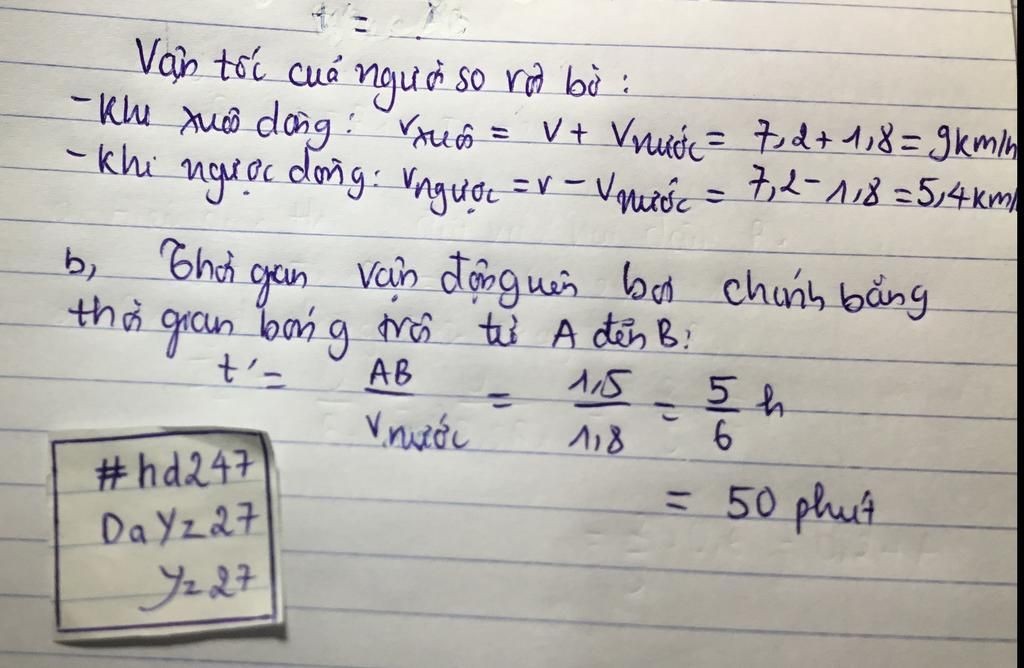 Vận tốc của người so với bờ:
- Khi xuôi dòng: vxuôi = v + vnước = 7,2 + 1,8 = 9km/h
- Khi ngược dòng: vngược = v - vnước = 7,2 - 1,8 = 5,4km/
b, Thời gian vận động viên bơi chính bằng
thời gian bóng trôi từ A đến B:
t' = AB / vnước = 1,5 / 1,8 = 5 / 6 h
= 50 phút
#hd247
DaYz27
Yz27